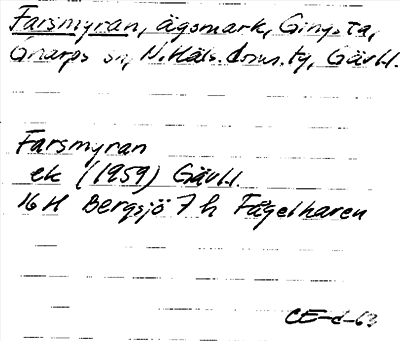 Farsmyran, ägomark, Gingsta,
Gnarps sn, N. Häls. doms. tg, Gävl. l.
Farsmyran
ek (1959) Gävl. l.
16 H Bergsjö 7 h Fågelharen